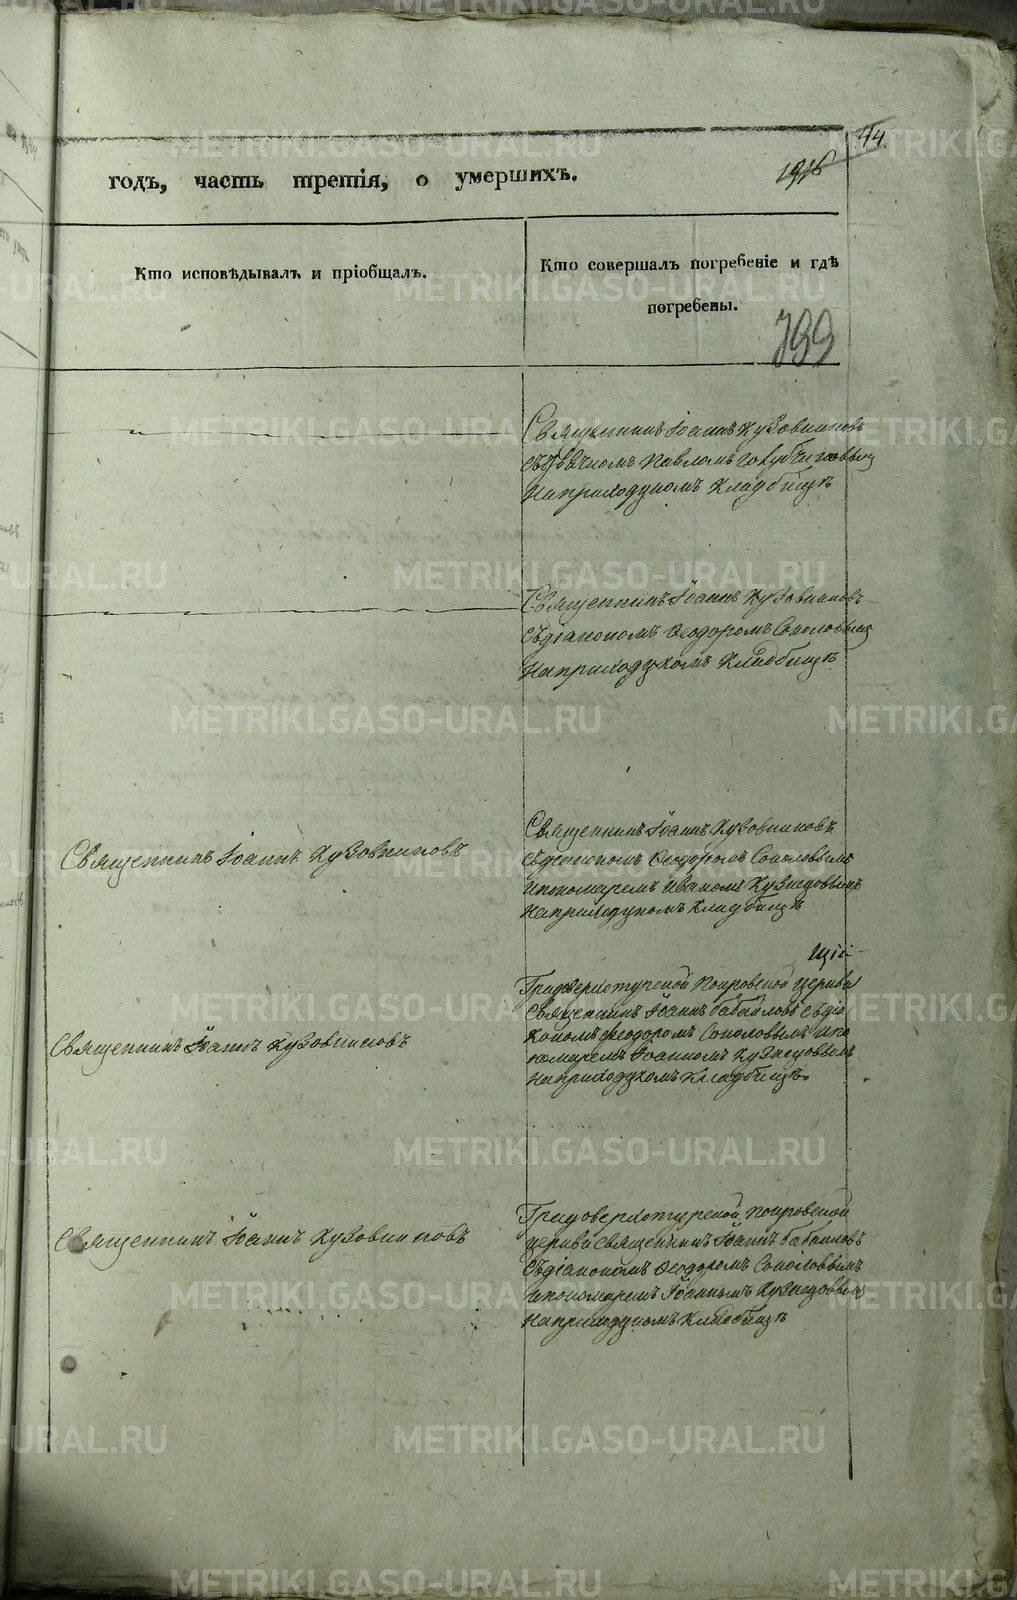 44.
годъ, часть третія, о умершихъ.
Кто исповѣдывалъ и пріобщалъ.
Кто совершалъ погребеніе и гдѣ
погребены.
799
Священникъ Іоаннъ Кузовниковъ
Павломъ
На приходскомъ Кладбищѣ
Священникъ Іоаннъ Кузовниковъ
Съ діакономъ Ѳеодоромъ Соколовымъ
На приходскомъ Кладбищѣ
Священникъ Іоаннъ Кузовниковъ
Священникъ Іоаннъ Кузовниковъ
съ діакономъ Ѳеодоромъ Соколовымъ
и пономаремъ Иваномъ Кузнецовымъ
На приходскомъ Кладбищѣ
Градоверхотурской Покровской церкви
Священникъ Іоаннъ съ діа
кономъ Ѳеодоромъ Соколовымъ и поно
номаремъ Іоанномъ Кузнецовымъ
На приходскомъ Кладбищѣ.
Священникъ Іоаннъ Кузовниковъ
Градоверхотурской Покровской
церкви Священникъ Іоаннъ
Съ діакономъ Ѳеодоромъ Соколовымъ
и пономаремъ Іоанномъ Кузнецовымъ
На приходскомъ Кладбищѣ
Священникъ Іоаннъ Кузовниковъ
METRIKI.GASO-URAL.RU